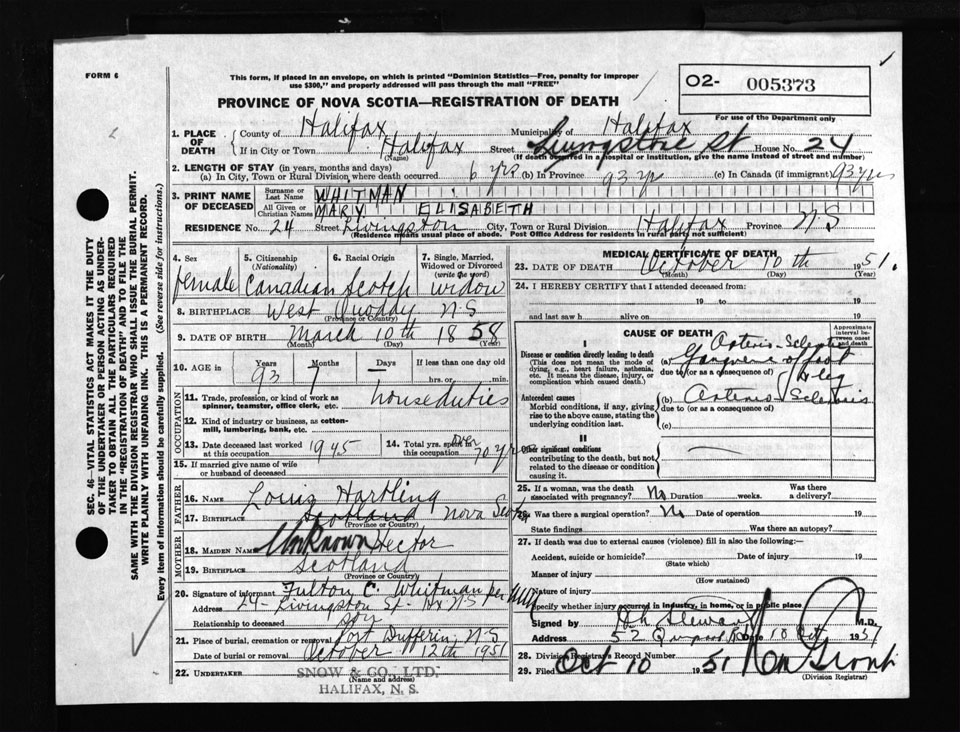 FORM 6
This form, if placed in an envelope, on which is printed "Dominion Statistics—Free, penalty for improper
use $300," and properly addressed will pass through the mail "FREE"
O2- 005373
For use of the Department only
PROVINCE OF NOVA SCOTIA—REGISTRATION OF DEATH
SEC. 46—VITAL STATISTICS ACT MAKES IT THE DUTY
OF THE UNDERTAKER OR PERSON ACTING AS UNDER-
TAKER TO OBTAIN ALL THE PARTICULARS REQUIRED
IN THE "REGISTRATION OF DEATH" AND TO FILE THE
SAME WITH THE DIVISION REGISTRAR WHO SHALL ISSUE THE BURIAL PERMIT.
WRITE PLAINLY WITH UNFADING INK. THIS IS A PERMANENT RECORD.
Every item of information should be carefully supplied. (See reverse side for instructions.)
1. PLACE OF DEATH County of Halifax Municipality of Halifax
If in City or Town Halifax Street Livingstone St House No. 24
(Name) (If death occurred in a hospital or institution, give the name instead of street and number)
2. LENGTH OF STAY (in years, months and days)
(a) In City, Town or Rural Division where death occurred 6 yrs (b) In Province 93 yrs (c) In Canada (if immigrant) 93 yrs
3. PRINT NAME OF DECEASED Surname or Last Name WHITMAN
All Given or Christian Names MARY ELISABEITH
RESIDENCE No. 24 Street Livingston City, Town or Rural Division Halifax Province N.S
(Residence means usual place of abode. Post Office Address for residents in rural parts not sufficient)
4. Sex 5. Citizenship (Nationality) 6. Racial Origin 7. Single, Married, Widowed or Divorced (write the word)
female Canadian Scotch widow
8. BIRTHPLACE West Quoddy N-S
(Province or Country)
9. DATE OF BIRTH March 10th 1858
(Month) (Day) (Year)
10. AGE in Years Months Days If less than one day old
93 7 — hrs. or min.
OCCUPATION
11. Trade, profession, or kind of work as spinner, teamster, office clerk, etc. house duties
12. Kind of industry or business, as cotton-mill, lumbering, bank, etc.
13. Date deceased last worked at this occupation 1945
14. Total yrs. spent in this occupation Over 70 yrs
15. If married give name of wife or husband of deceased
FATHER
16. Name Louis Hartling
17. Birthplace Scotland Nova Scotia
(Province or Country)
MOTHER
18. Maiden Name Unknown Hector
19. Birthplace Scotland
(Province or Country)
20. Signature of informant Fulton C. Whitman per
Address 24 - Livingston St - Hx N S
Relationship to deceased son
21. Place of burial, cremation or removal Port Dufferin, N S
Date of burial or removal October 12th 1951
22. UNDERTAKER SNOW & CO., LTD.
(Name and address)
HALIFAX, N. S.
MEDICAL CERTIFICATE OF DEATH
23. DATE OF DEATH October 10th 1951.
(Month) (Day) (Year)
24. I HEREBY CERTIFY that I attended deceased from
19 to 19
and last saw h alive on 19
CAUSE OF DEATH
Approximate interval between onset and death
I
Disease or condition directly leading to death
(This does not mean the mode of dying, e.g., heart failure, asthenia, etc. It means the disease, injury, or complication which caused death.)
(a) Arterio-Sclerotic Gangrene of foot & leg
due to (or as a consequence of)
Antecedent causes
Morbid conditions, if any, giving rise to the above cause, stating the underlying condition last.
(b) Arterio Sclerosis
due to (or as a consequence of)
(c)
II
Other significant conditions
contributing to the death, but not related to the disease or condition causing it.
25. If a woman, was the death associated with pregnancy? No Duration weeks. Was there a delivery?
26. Was there a surgical operation? No Date of operation 19
State findings Was there an autopsy?
27. If death was due to external causes (violence) fill in also the following:—
Accident, suicide or homicide? Date of injury 19
(State which)
Manner of injury
(How sustained)
Nature of injury
Specify whether injury occurred in industry, in home, or in public place
Signed by Stewart M.D.
Address 52 Quinpool Rd Date 10 Oct 1951
28. Division Registrar's Record Number
29. Filed Oct 10 1951
(Division Registrar)